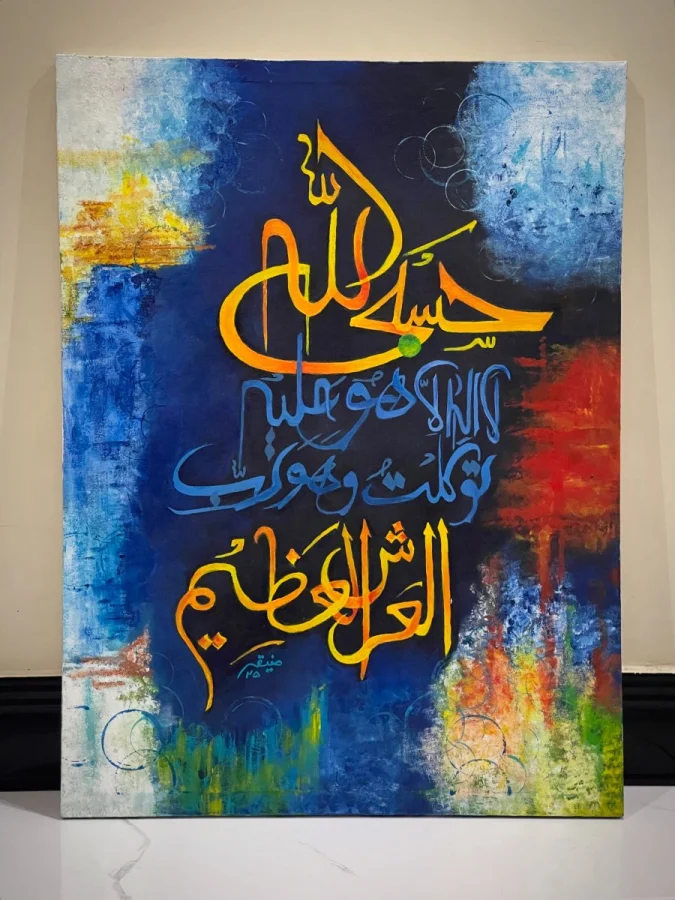 حسبي الله
لا إله إلا هو عليه
توكلت وهو رب
العرش العظيم
٢٥